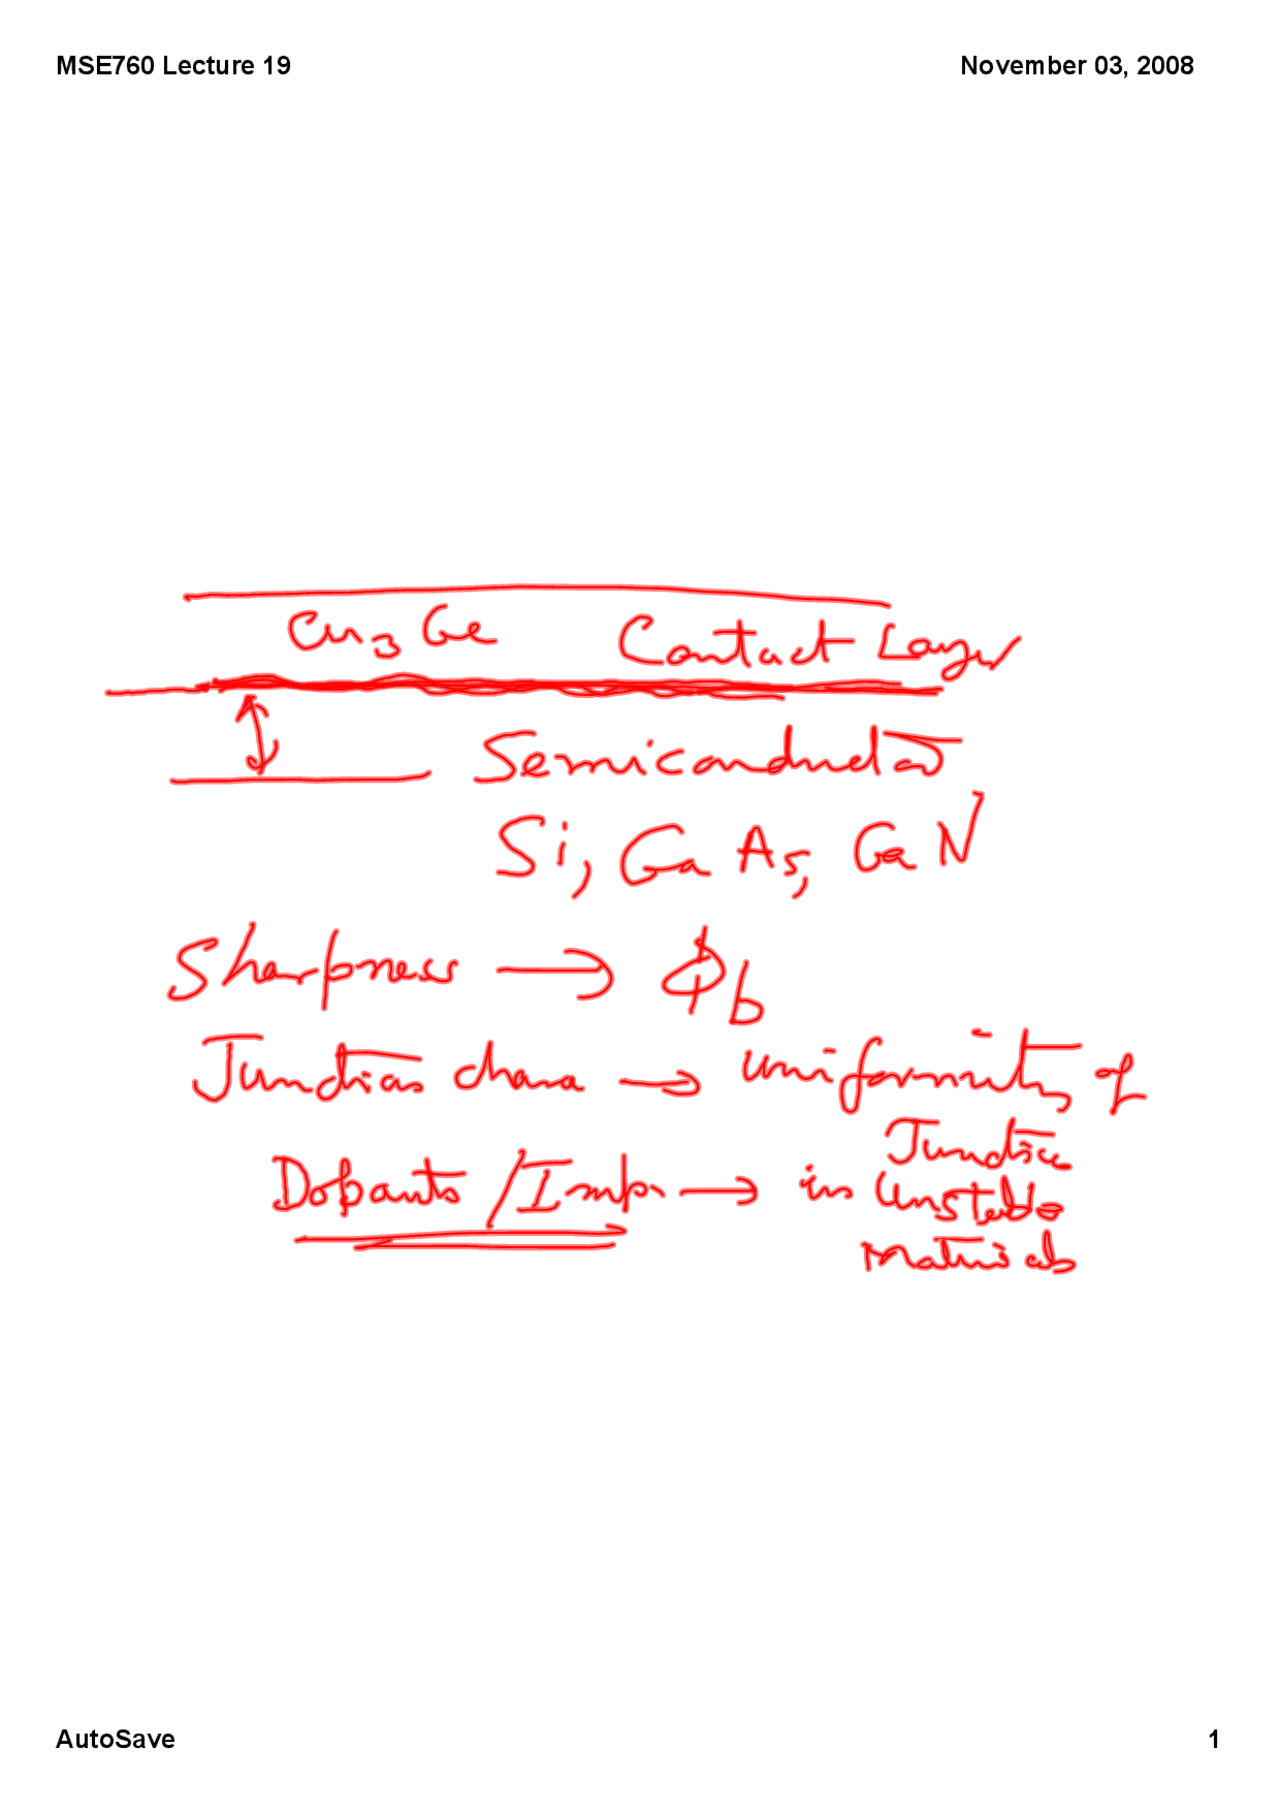 MSE760 Lecture 19
November 03, 2008
Cu₃Ge Contact Layer
Semiconductor
Si, GaAs, GaN
Sharpness → Φb
Junction chara → uniformity of
Junction
Dopants / Imp. → in Unstable
Materials
AutoSave
1